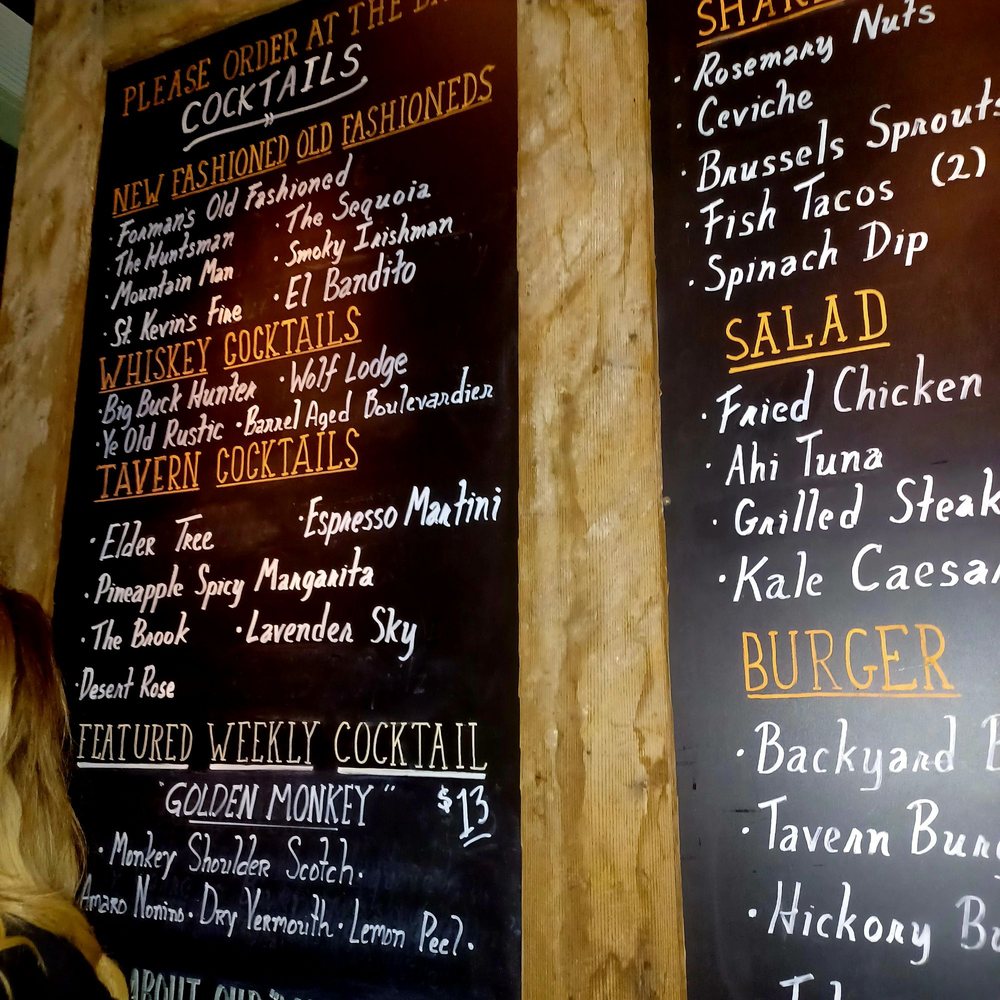 PLEASE ORDER AT THE
COCKTAILS
NEW FASHIONED OLD FASHIONEDS
· Forman's Old Fashioned
· The Huntsman · The Sequoia
· Mountain Man · Smoky Irishman
· St. Kevin's Fire · El Bandito
WHISKEY COCKTAILS
· Big Buck Hunter · Wolf Lodge
· Ye Old Rustic · Barrel Aged Boulevardier
TAVERN COCKTAILS
· Elder Tree · Espresso Martini
· Pineapple Spicy Margarita
· The Brook · Lavender Sky
· Desert Rose
FEATURED WEEKLY COCKTAIL
"GOLDEN MONKEY" $13
· Monkey Shoulder Scotch.
Amaro Nonino · Dry Vermouth · Lemon Peel.
ABOUT OUR
· Rosemary Nuts
· Ceviche
· Brussels Sprouts
· Fish Tacos (2)
· Spinach Dip
SALAD
· Fried Chicken
· Ahi Tuna
· Grilled Steak
· Kale Caesar
BURGER
· Backyard
· Tavern
· Hickory